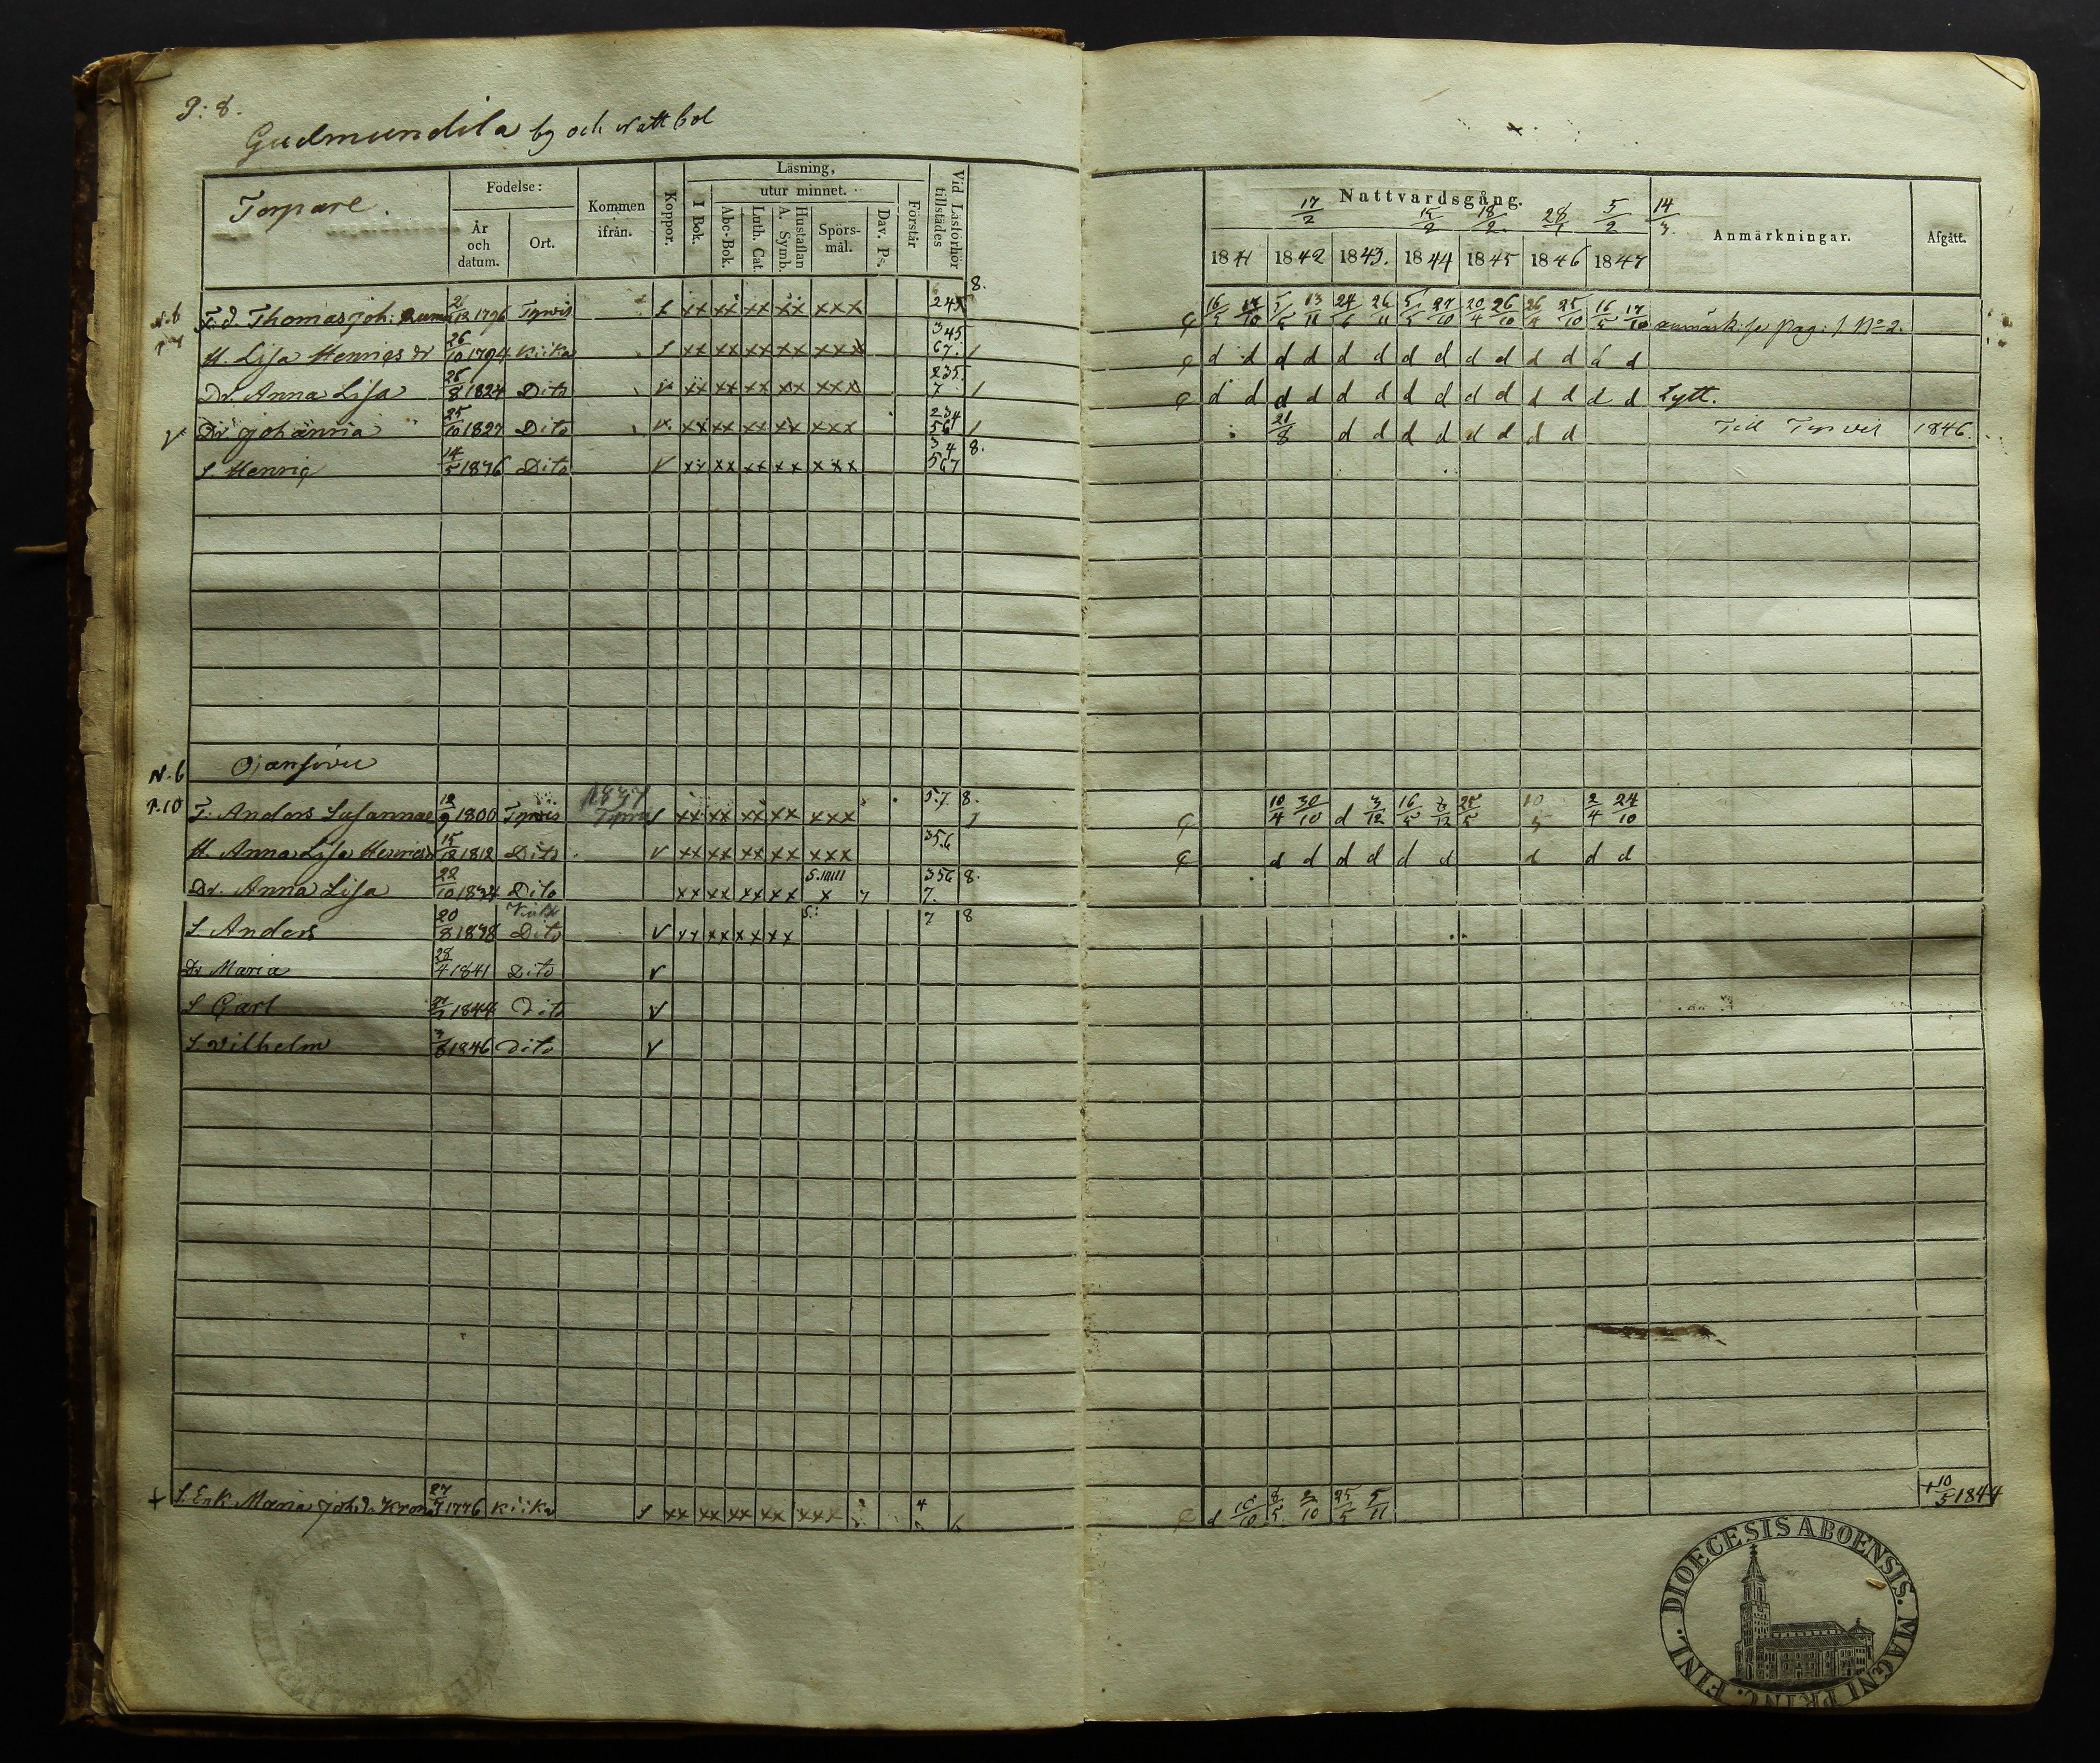 P: 8.
Gudmundila by och Nattbol
Torpare.
Födelse:
År och datum.
Ort.
Kommen ifrån.
Koppor.
Läsning,
I Bok.
utur minnet.
Abc-Bok.
Luth. Cat.
Hustaflan A. Symb.
Spörsmål.
Dav. Ps.
Förstår
Vid Läsförhör tillstädes
Nattvardsgång.
17/2 15/2 18/2 28/1 5/2 14/3
1841 1842 1843. 1844 1845 1846 1847
Anmärkningar.
Afgått.
N.6 T. d. Thomas Joh: 21/12 1796 Tyrvis xx xx xx xx xxx 245 8. 16/5 17/10 5/5 13/11 24/6 26/11 5/5 27/10 20/4 26/10 25/10 16/5 17/10 anmärk: se pag: 1 No 2.
H. Lisa Henricsdr 26/10 1794 Kiika xx xx xx xx xxx 345 67. 1 d d d d d d d d d d d d d d
Dr. Anna Lisa 28/8 1824 Dito v xx xx xx xx xxx 235. 7 1 d d d d d d d d d d d d d d Lytt.
v Dr Johanna 25/10 1827 Dito v. xx xx xx xx xxx 234 56 1 21/8 d d d d d d d d Till Tyrvis 1846.
S. Henric 14/5 1836 Dito v xx xx xx xx xxx 3 4 567 8.
N.6 Ojansivu
P.10 T. Anders Susannae 12/9 1800 Tyrvis 1837 Tyrvis xx xx xx xx xxx 5.7. 8. 1 10/4 30/10 d 3/12 16/5 8/12 25/5 10/5 2/4 24/10
H. Anna Lisa Henricsdr 15/12 1812 Dito. v xx xx xx xx xxx 35.6 d d d d d d d d d
Dr. Anna Lisa 22/10 1834 Dito xx xx xx xx x 7 356 7. 8.
S. Anders 20/8 1838 Dito v xx xx xx xx 7 8
Dr Maria 28/4 1841 Dito v
S Carl 1844 Dito v
S. Vilhelm 3/6 1846 Dito v
+ S. Enk. Maria Joh.dr 1776 Kiika xx xx xx xx xxx 4 d 10/10 8/5 2/10 25/5 5/11 + 10/5 1844
DIOECESIS ABOENSIS. MAGNI PRINC. FINL.